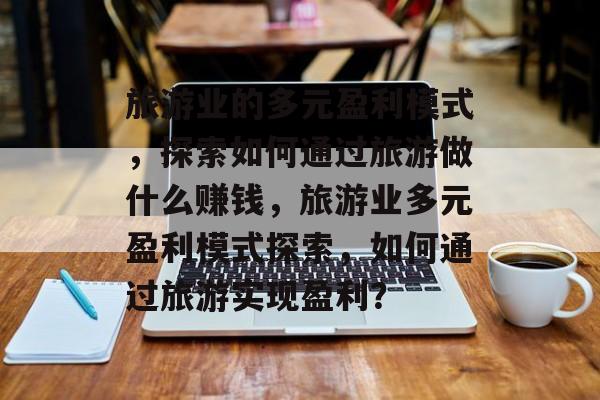 旅游业的多元盈利模式
，探索如何通过旅游做
什么赚钱，旅游业多元
盈利模式探索，如何通
过旅游实现盈利？